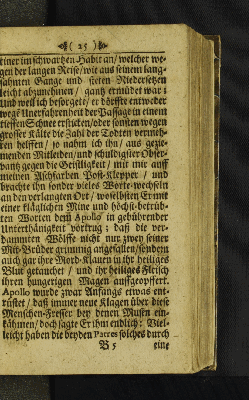 ( 25 )
einer im schwartzen Habit an/ welcher we-
gen der langen Reise/ wie aus seinem lang-
sahmen Gange und steten Niedersetzen
leicht abzunehmen / gantz ermüdet war;
Und weil ich besorgete/ er dörffte entweder
wege Unerfahrenheit der Passage in einem
tieffen Schnee sticken/ oder sonsten wegen
grosser Kälte die Zahl der Todten vermeh-
ren helffen/ so nahm ich ihn/ aus gezie-
menden Mitleiden/ und schuldigster Obser-
vantz gegen die Geistligkeit / mit mir auff
meinen Aschfarben Post-Klepper / und
brachte ihn sonder vieles Worte-wechseln
an den verlangten Ort/ woselbsten Er mit
einer kläglichen Mine und höchst-betrüb-
ten Worten dem Apollo in gebührender
Unterthänigkeit vortrug; daß die ver-
dammten Wölffe nicht nur zwey seiner
Mit-Brüder grimmig angefallen/ sondern
auch gar ihre Mord-Klauen in ihr heiliges
Blut getauchet / und ihr heiliges Fleisch
ihren hungerigen Magen auffgeopffert.
Apollo wurde zwar Anfangs etwas ent-
rüstet / daß immer neue Klagen über diese
Menschen-Fresser bey denen Musen ein-
kähmen/ doch sagte Er ihm endlich: Viel-
leicht haben die beyden Patres solches durch
B 5 eine